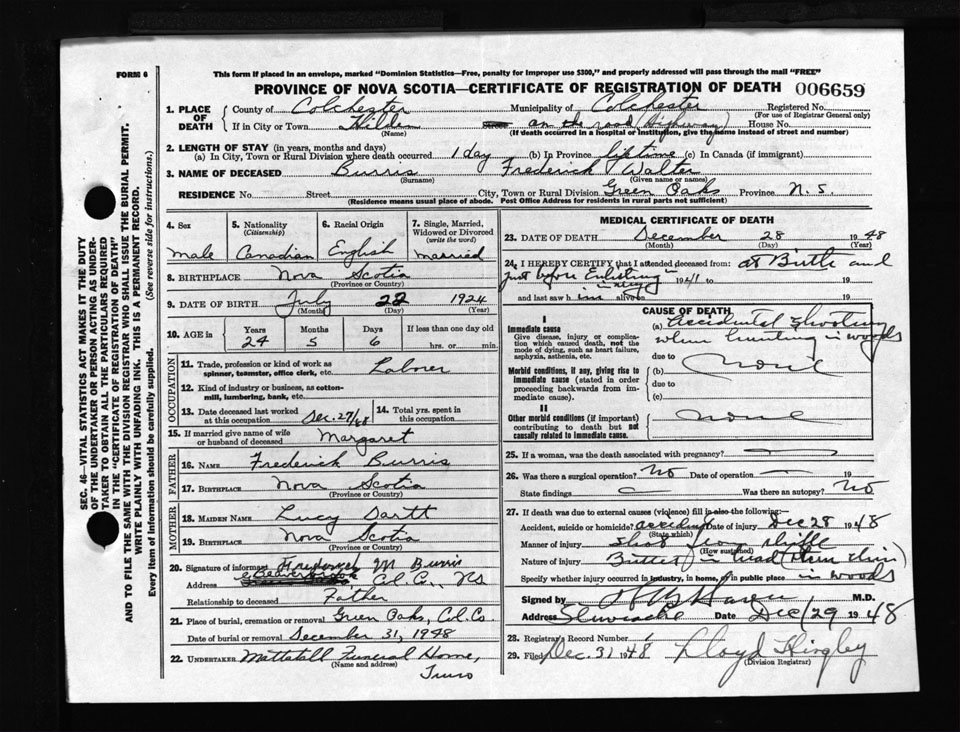 FORM 6
This form if placed in an envelope, marked "Dominion Statistics—Free, penalty for improper use $300," and properly addressed will pass through the mail "FREE"
PROVINCE OF NOVA SCOTIA—CERTIFICATE OF REGISTRATION OF DEATH 006659
SEC. 46—VITAL STATISTICS ACT MAKES IT THE DUTY
OF THE UNDERTAKER OR PERSON ACTING AS UNDER-
TAKER TO OBTAIN ALL THE PARTICULARS REQUIRED
IN THE "CERTIFICATE OF REGISTRATION OF DEATH"
AND TO FILE THE SAME WITH THE DIVISION REGISTRAR WHO SHALL ISSUE THE BURIAL PERMIT.
WRITE PLAINLY WITH UNFADING INK. THIS IS A PERMANENT RECORD.
Every item of Information should be carefully supplied. (See reverse side for instructions.)
1. PLACE OF DEATH County of Colchester Municipality of Colchester Registered No.
(For use of Registrar General only)
If in City or Town Hilden Street on the road (Highway) House No.
(Name) (If death occurred in a hospital or institution, give the name instead of street and number)
2. LENGTH OF STAY (in years, months and days)
(a) In City, Town or Rural Division where death occurred 1 day (b) In Province lifetime (c) In Canada (if immigrant)
3. NAME OF DECEASED Burris Frederick Walter
(Surname) (Given name or names)
RESIDENCE No. Street City, Town or Rural Division Green Oaks Province N.S.
(Residence means usual place of abode. Post Office Address for residents in rural parts not sufficient)
4. Sex 5. Nationality (Citizenship) 6. Racial Origin 7. Single, Married, Widowed or Divorced (write the word)
Male Canadian English Married
8. BIRTHPLACE Nova Scotia
(Province or Country)
9. DATE OF BIRTH July 22 1924
(Month) (Day) (Year)
10. AGE in Years Months Days If less than one day old
24 5 6 hrs. or min.
OCCUPATION
11. Trade, profession or kind of work as spinner, teamster, office clerk, etc. Labrer
12. Kind of industry or business, as cotton-mill, lumbering, bank, etc.
13. Date deceased last worked at this occupation Dec. 27/48 14. Total yrs. spent in this occupation
15. If married give name of wife or husband of deceased Margaret
FATHER
16. NAME Frederick Burris
17. BIRTHPLACE Nova Scotia
(Province or Country)
MOTHER
18. MAIDEN NAME Lucy Dartt
19. BIRTHPLACE Nova Scotia
(Province or Country)
20. Signature of informant Frederick M Burris
Address Col. C., NS
Relationship to deceased Father
21. Place of burial, cremation or removal Green Oaks, Col. Co.
Date of burial or removal December 31, 1948
22. UNDERTAKER Mattatall Funeral Home,
(Name and address)
Truro
MEDICAL CERTIFICATE OF DEATH
23. DATE OF DEATH December 28 1948
(Month) (Day) (Year)
24. I HEREBY CERTIFY that I attended deceased from: at Birth and
just before Enlisting in army 1941 to 19
and last saw him alive on 19
CAUSE OF DEATH
I
Immediate cause
Give disease, injury or complication which caused death, not the mode of dying, such as heart failure, asphyxia, asthenia, etc.
(a) Accidental Shooting
when hunting in woods
due to
Morbid conditions, if any, giving rise to immediate cause (stated in order proceeding backwards from immediate cause).
(b) none
due to
(c)
II
Other morbid conditions (if important) contributing to death but not causally related to immediate cause.
none
25. If a woman, was the death associated with pregnancy?
26. Was there a surgical operation? No Date of operation 19
State findings Was there an autopsy? No
27. If death was due to external causes (violence) fill in also the following:—
Accident, suicide or homicide? accident Date of injury Dec 28 1948
(State which)
Manner of injury Shot from rifle
(How sustained)
Nature of injury Bullet in head
Specify whether injury occurred in industry, in home, or in public place in woods
Signed by M.D.
Address Date Dec/29 1948
28. Registrar's Record Number 1
29. Filed Dec. 31 1948 Lloyd
(Division Registrar)